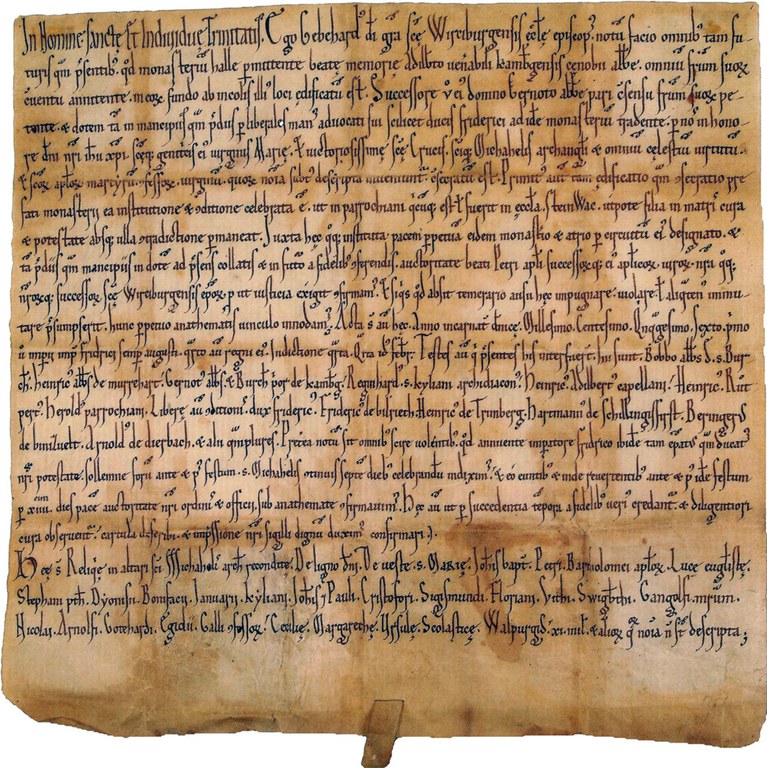 In Nomine sanctę Et Individuę Trinitatis. Ego Gebehard' di gra scę Wirciburgensis ęcclę episcop'. notū facio omnib' tam fu-
turis quam psentib'. qd monasteriū halle pmittente beate memorie Adilbto venabili kambgensis cenobii abbe. omniū frum suorz
eventu annitente. in eorz fundo ab incolis illi' loci edificatū est. Successore v ei' domno Gernoto abbe pari csensu frum suorz pe-
tente. & dotem ta in mancipiis qm pdiis p liberales man' advocati sui scilicet ducis friderici ad ide monasteriū tradente. p no in hono-
re dni nri ihu xpi. scęq; genitricis ei' virginis Marię. & victoriosissimę scę Crucis. sciq; Michahelis archangli & omniū celestiū virtutū.
& scorz aplorz martyrū. fessorz. virginū. quorz noia subt' descripta inveniunt. csecratū est. Primit' aut tam edificatio qm csecratio pre
fati monasterii ea institutione & cditione celebrata ē. ut in parrochiani quicuq; est t fuerit in ęccla. SteinWac. utpote filia in matri' cura
& potestate absq; ulla cradictione pmaneat. Juxta hec qq; instituta. pacem ppetua eidem monastio & atrio p circuitū ei' designato. &
ta pdiis qm mancipiis in dote ad psens collatis & in futo a fidelib' cferendis. auctoritate beati Petri apli successorzq; ei' aplicorz virorz. nra qq;
nrorzq; successorz scę Wirciburgensis eporz. p ut iusticia exigit cfirmam'. & siqs qd absit temerario ausu hec impugnare. violare. t aliqten' inmu-
tare psumpserit. hunc ppetuo anathematis vinculo innodam'. Acta s au hec. Anno incarnat dnice. Millesimo. Centesimo. Qnqgesimo. Sexto. pmo
v imperii imp fridrici semp augusti. qrto au regni ei'. Indictione qrta. Qrta id' febr. Testes au q psentes his interfuert. hii sunt. Bobbo abbs d. s. Bur-
ch. Heinric' abbs de murrehart. Gernot' abbs. & Burch por de kambg. Regnhard' s. kyliani archidiacon'. Heinric'. Adilbert' capellani. Heinric'. Rut-
pert'. Herold' parrochiani. Liberę au cditioni'. dux frideric'. Frideric' de bilriech. Heinric' de Trimberg. Hartmann' de Schillingisfirst. Beringer'
de binizvelt. Arnold' de dierbach. & alii qmplures. Pretea notū sit omnib' scire volentib'. qd annuente impatore fridrico ibide tam epat' qm ducat'
nri potestate. sollemne forū ante & p' festum. s. Michahelis ctinuis septe dieb' celebrandū indixim'. & cū euntib' & inde revertentib' ante & p' ide festum
p xiiii. dies pace auctoritate nri ordinis & officii. sub anathemate cfirmavim'. Hec au ut p succedentia tepora a fidelib' veri' credant. & diligentiori
cura observent. cartula describi. & imp̄ssione nri sigilli dignū duxim' confirmari.
Hęc s Reliqię in altari sci Michahel' arch recondite. De ligno dni. De veste. s. Marię. Johis bapt. Petri. Bartholomei aplorz. Luce euglistę.
Stephani pth. Dyonisii. Bonifacii. Januarii. kyliani. Johis & Pauli. Cristofori. Sigismundi. Floriani. Vithi. Swigbthi. Gangolfi. mrum.
Nicolai. Arnolfi. Gotehardi. Egidii. Galli cfessorz. Cecilię. Margarethę. Ursulę. Scolasticę. Walpurgis. xi. mil. & aliorz qrz noia n st descripta;